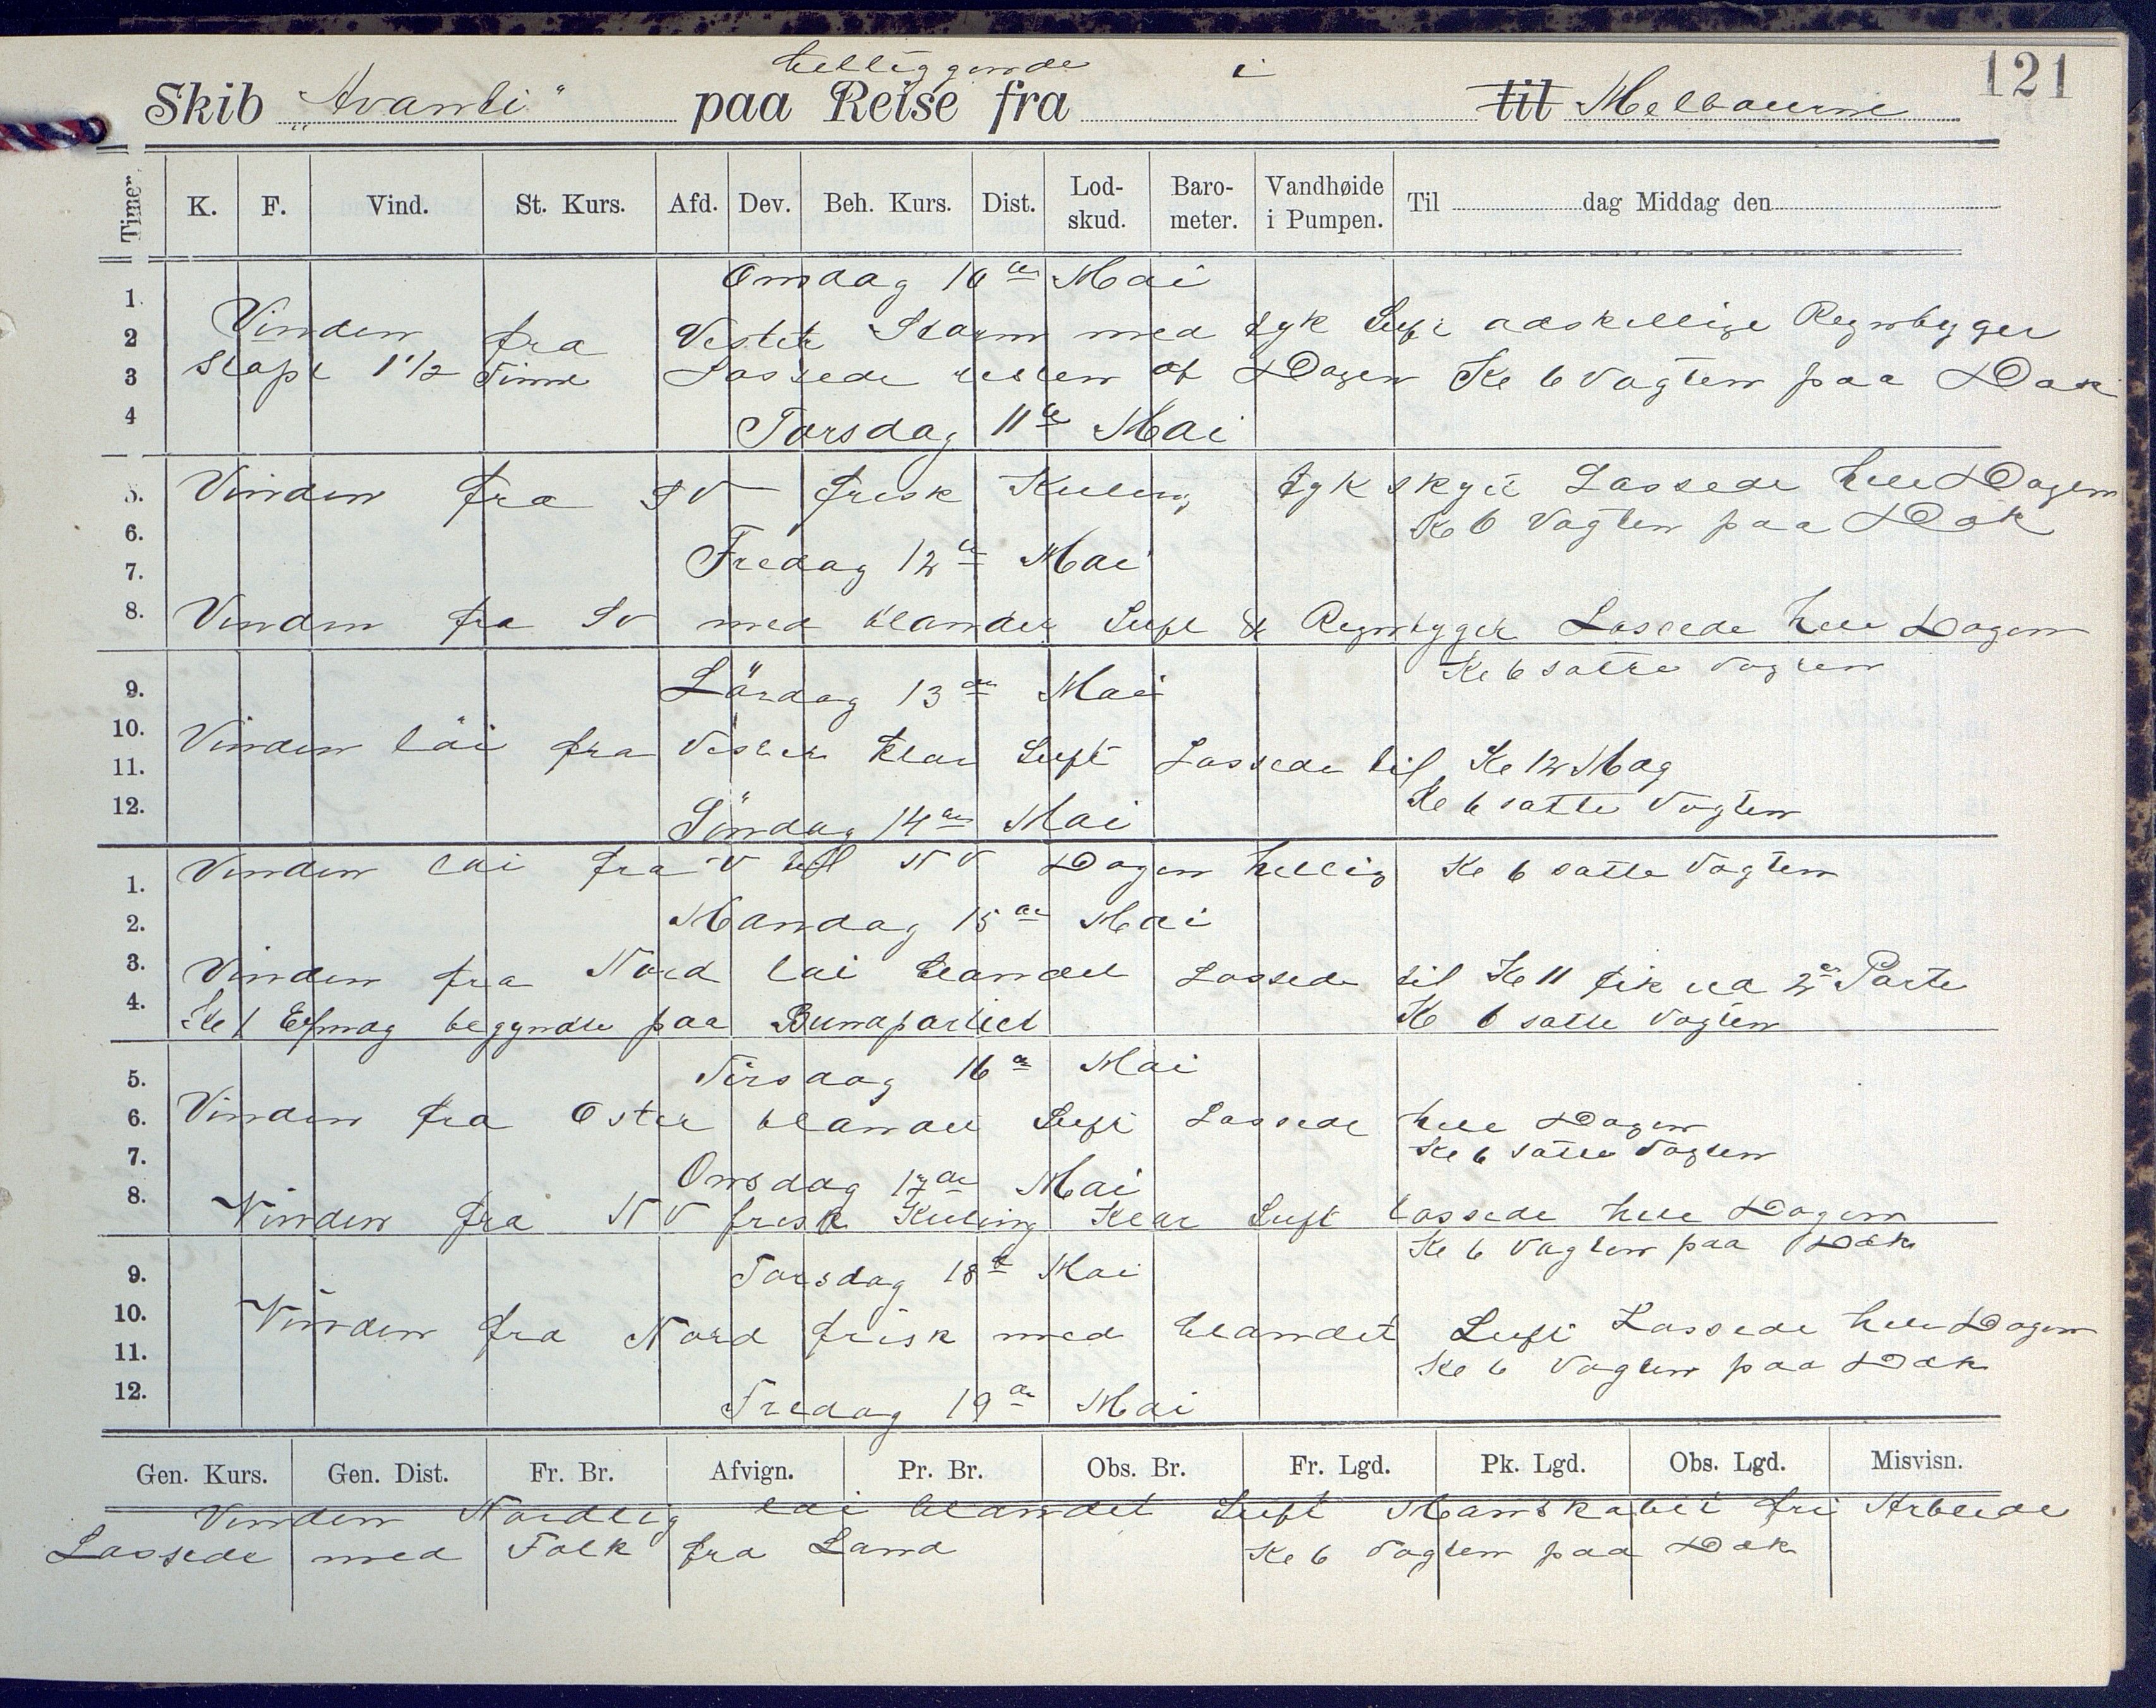 121
tilliggende i
Skib "Avanti" paa Reise fra til Melbourne
Timer. K. F. Vind. St. Kurs. Afd. Dev. Beh. Kurs. Dist. Lod-skud. Baro-meter. Vandhøide i Pumpen. Til dag Middag den
Onsdag 10de Mai
1.
2 Vinden fra Vester Storm med tyk Luft adskellige Regnbyger
3 Stopt 1 1/2 Time Lossede resten af Dagen Kl 6 Vagten paa Dæk
4 Torsdag 11te Mai
5. Vinden fra SV frisk Kuling tyk skyet Lossede hele Dagen
6. Kl 6 Vagten paa Dæk
Fredag 12te Mai
7.
8. Vinden fra SV med blandet Luft & Regnbyger Lossede hele Dagen
Kl 6 satte Vagten
9. Lördag 13de Mai
10. Vinden löi fra Vester klar Luft Lossede til Kl 12 Mdg
11.
12. Kl 6 satte Vagten
Söndag 14de Mai
1. Vinden löi fra V til NV Dagen hellig Kl 6 satte Vagten
2. Mandag 15de Mai
3. Vinden fra Nord löi blandet Lossede til Kl 11 fik ud 2de Parti
4. Kl 1 Efmdg begyndte paa Bundpartiet Kl 6 satte Vagten
5. Tirsdag 16de Mai
6. Vinden fra Oster blandet Luft Lossede hele Dagen
7. Kl 6 satte Vagten
Onsdag 17de Mai
8. Vinden fra NV frisk Kuling Klar Luft lossede hele Dagen
Kl 6 Vagten paa Dæk
9. Torsdag 18de Mai
10. Vinden fra Nord frisk med blandet Luft Lossede hele Dagen
11. Kl 6 Vagten paa Dæk
12. Fredag 19de Mai
Gen. Kurs. Gen. Dist. Fr. Br. Afvign. Pr. Br. Obs. Br. Fr. Lgd. Pk. Lgd. Obs. Lgd. Misvisn.
Vinden Nordlig löi blandet Luft Manskabet fri Arbeide
Lossede med Folk fra Land Kl 6 Vagten paa Dæk